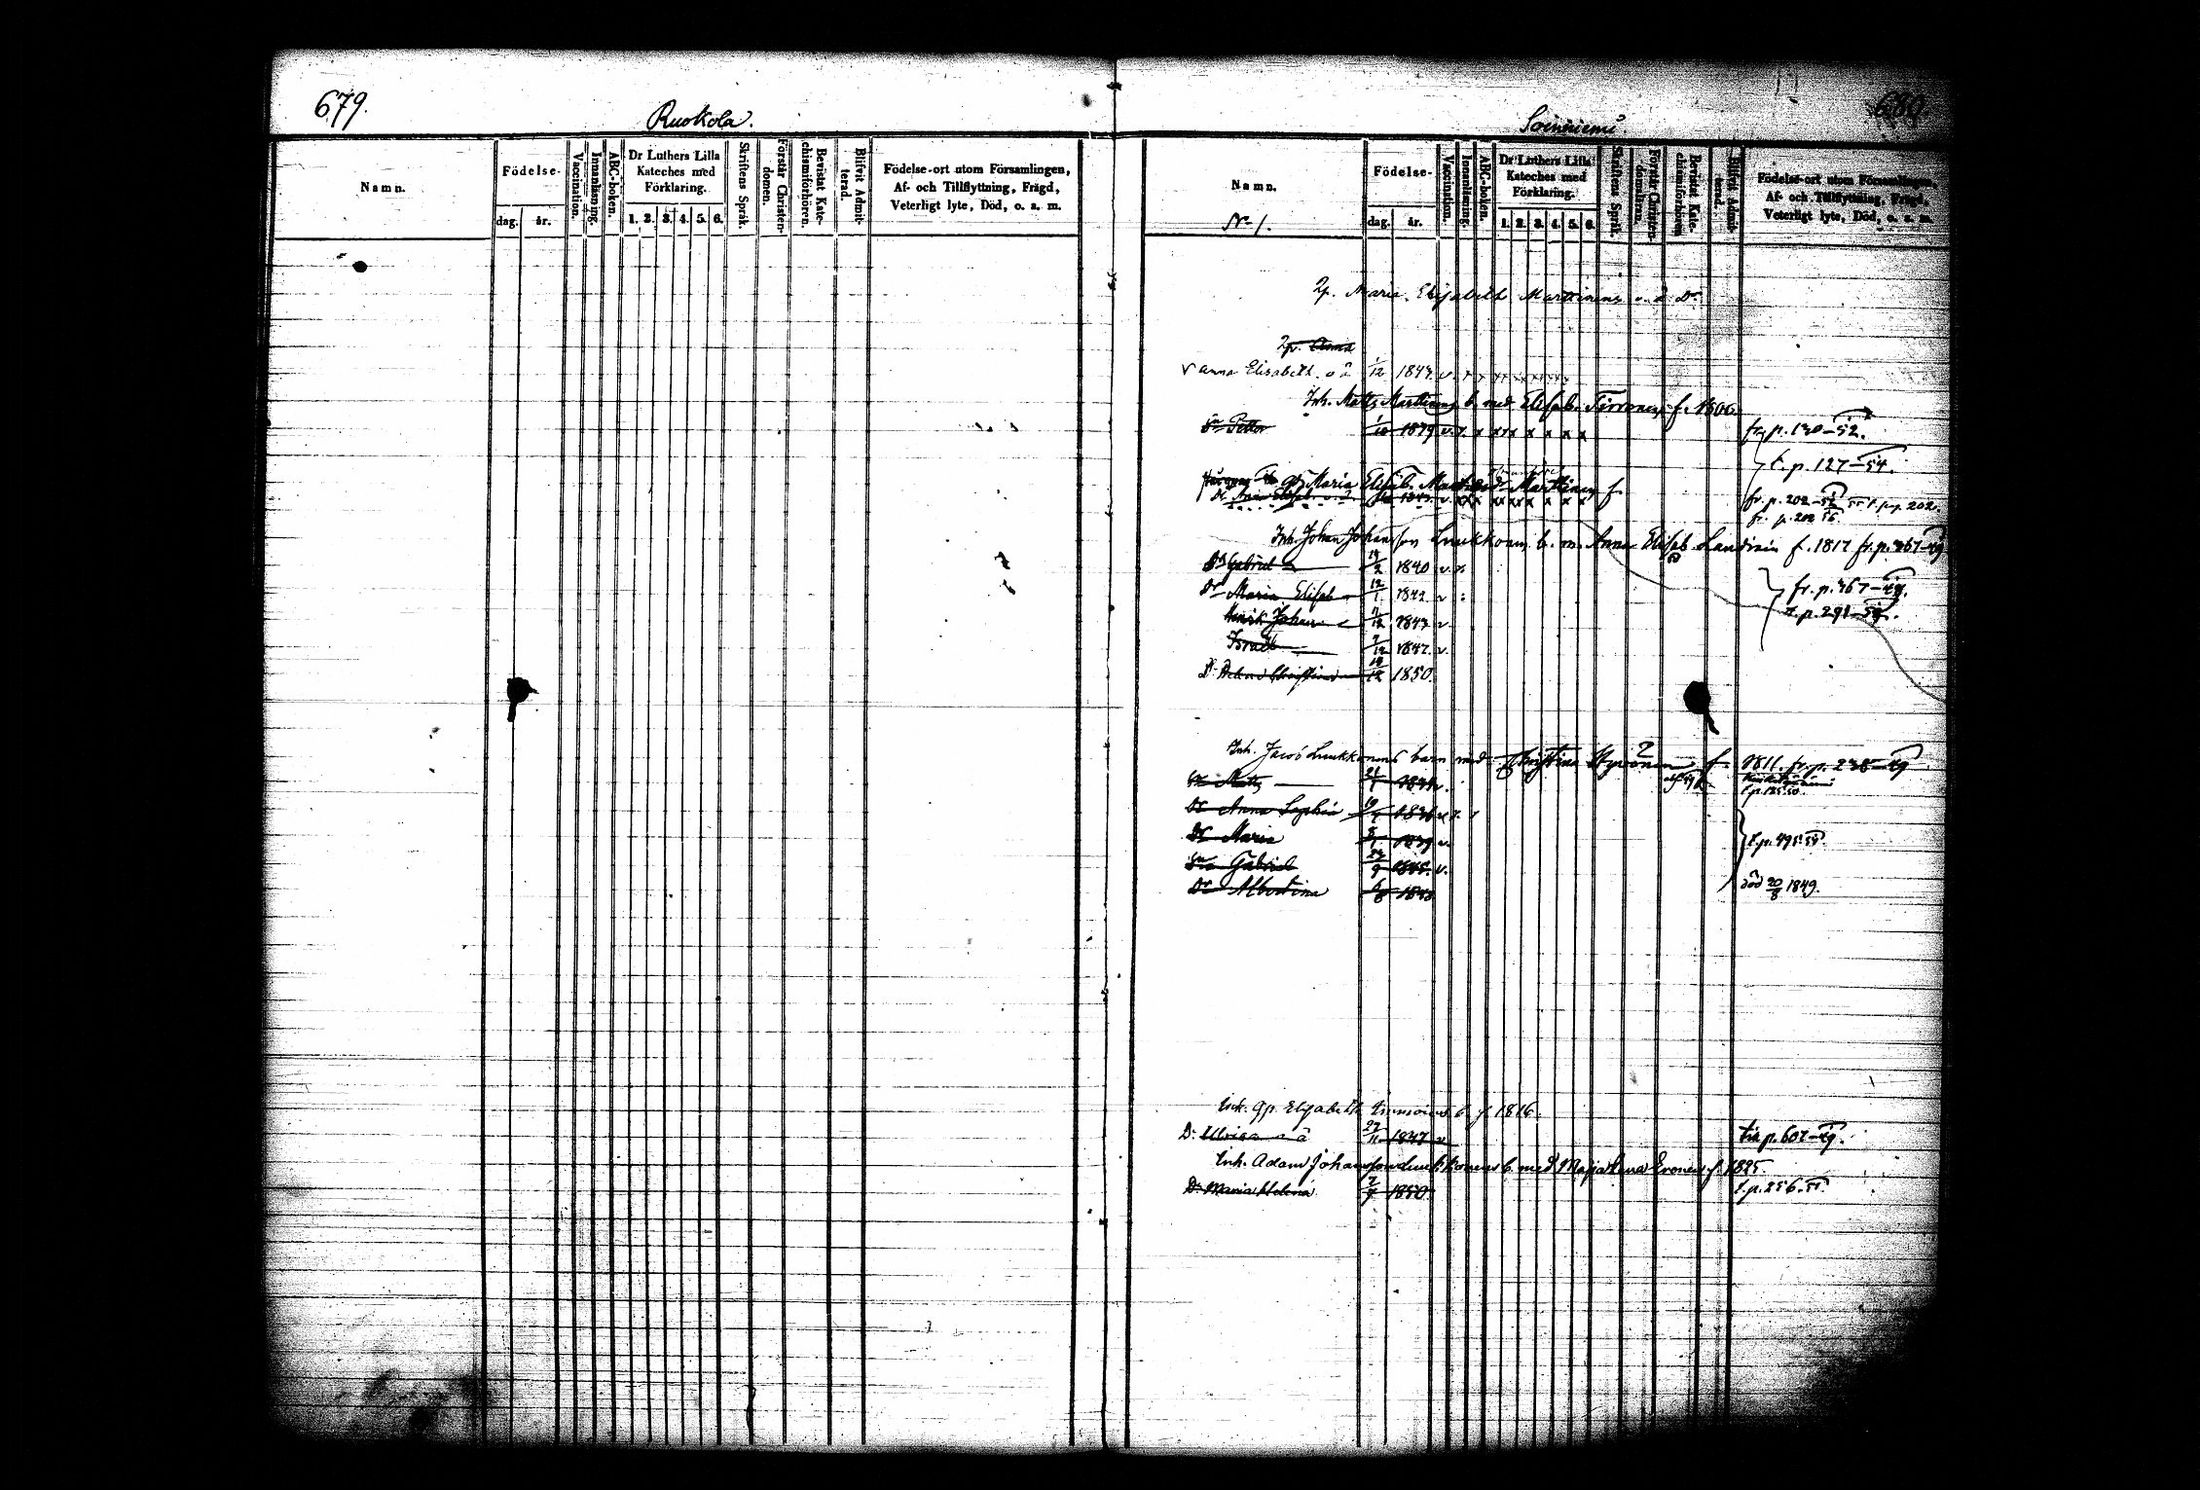 679.
Ruokola.
Namn.
Födelse-
dag. år.
Vaccination.
Innanläsning.
ABC-boken.
Dr Luthers Lilla Kateches med Förklaring.
1. 2. 3. 4. 5. 6.
Skriftens Språk.
Förstår Christendomen.
Bevistat Katechismiförhören.
Blifvit Admitterad.
Födelse-ort utom Församlingen,
Af- och Tillflyttning, Frägd,
Veterligt lyte, Död, o. s. m.
680.
Soinniemi
Namn.
No 1.
Födelse-
dag. år.
Vaccination.
Innanläsning.
ABC-boken.
Dr Luthers Lilla Kateches med Förklaring.
1. 2. 3. 4. 5. 6.
Skriftens Språk.
Förstår Christendomen.
Bevistat Katechismiförhören.
Blifvit Admitterad.
Födelse-ort utom Församlingen,
Af- och Tillflyttning, Frägd,
Veterligt lyte, Död, o. s. m.
Maria Elisabeth Marttinens o. ä. Dr
Anna
v Anna Elisabeth o ä 1/12 1847. v. x x x x x x x x x
Inh. Matts Marttinens b. med Elisab. Tirronen f. 1800
Sn Petter 1/10 1839 v. x x x x x x x x fr. p. 130-52.
t. p. 127-54.
Maria Elisab. Marttinen f.
Dr Anna Elisab. o. ä v. x x x x x x x x x fr. p. 202-52 55 t. p. 202.
fr. p. 202 56.
Inh. Johan Johansson Luukkonens b. m. Anna Elisab. Laudiain f. 1817 fr. p. 467-49
Sn Gabriel 14/2 1840 v. x
Dr Maria Elisab 12/1 1842 v fr. p. 467-49.
Henrik Johan 11/12 1843 v t. p. 291-54.
Israel 7/12 1847 v.
Dr Christina 14/12 1850.
Inh. Jacob Luukkonens barn med Christina Hyvönen f. 1811. fr. p. 238-49
Sn Matts 21/1 1834 v.
t. p. 125.50.
Dr Anna Sophia 1836 v x x
Dr Maria 1839 v t. p. 495.54.
Sn Gabriel v.
Dr Albertina 6/8 1848 död 20/8 1849.
Inh. qp. Elisabeth Immoinens b. f. 1816.
Dr Ulrica o ä 27/11 1847 v t. p. 607-49.
Inh. Adam Johansson Luukkonens b. med Maja Lena Eronen f. 1825.
Dr Maria Helena 2/7 1850. t. p. 256.54.